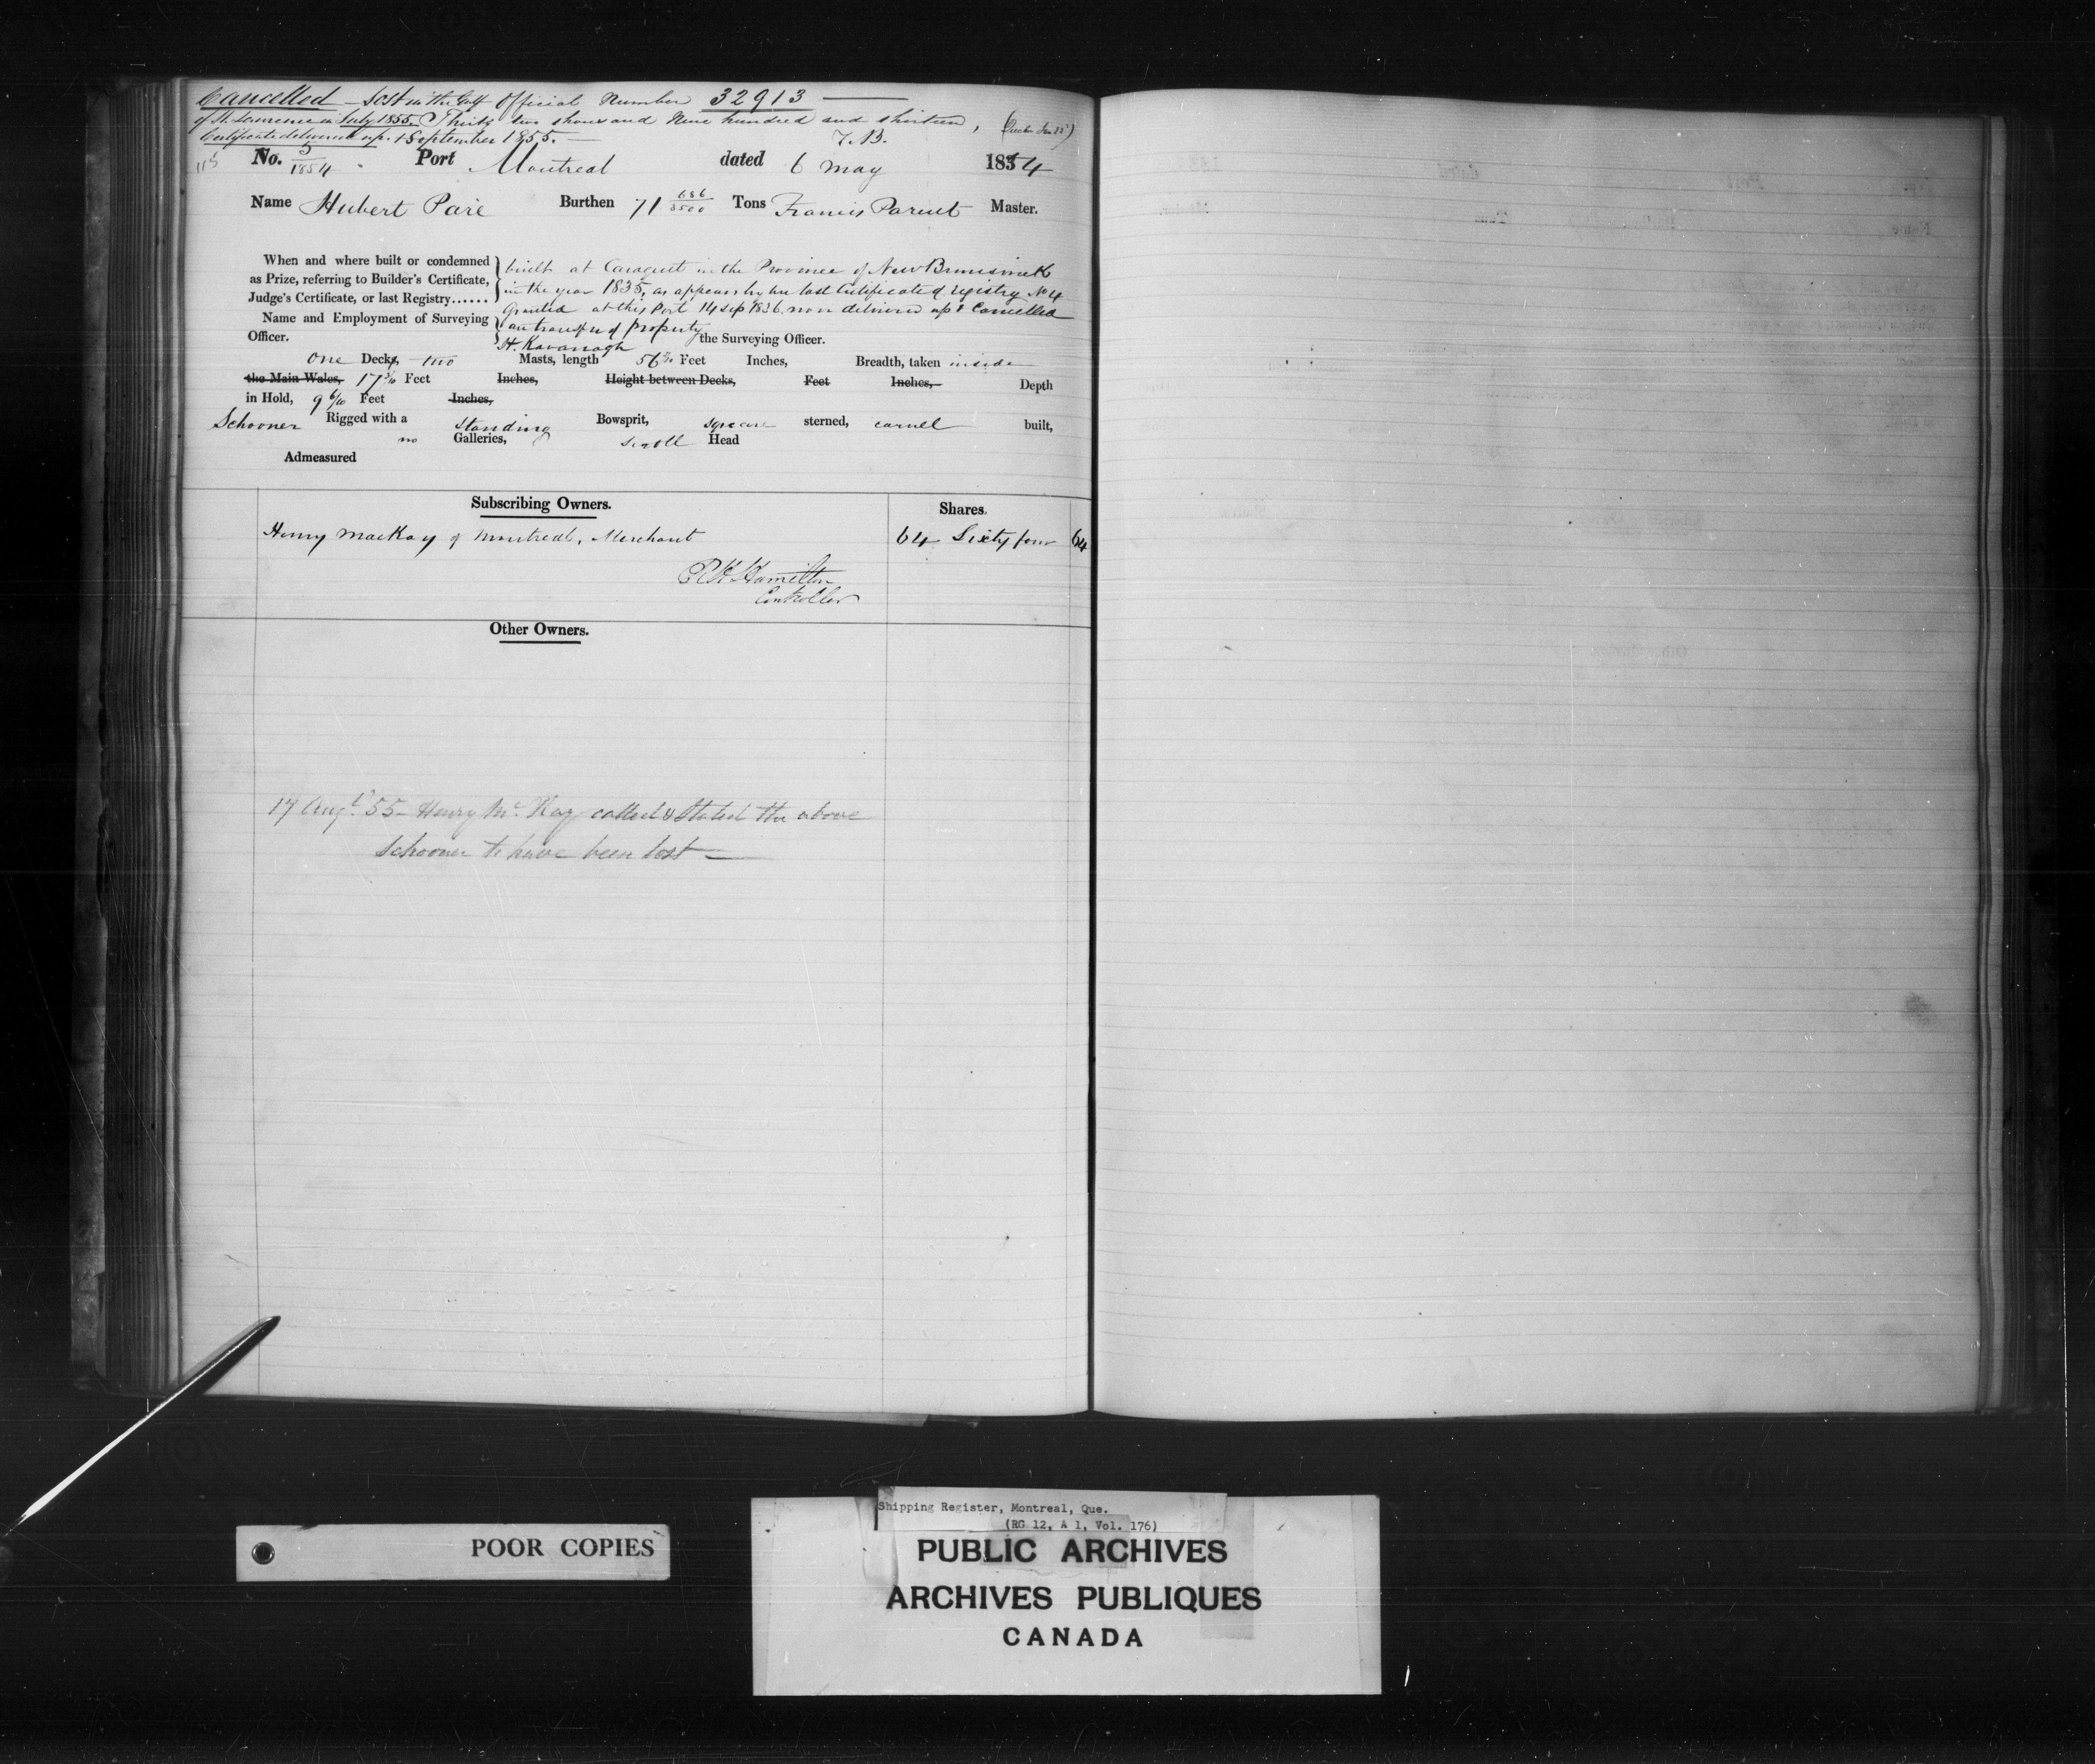 Cancelled – Lost in the Gulf Official Number 32913
of St. Lawrence in July 1855. Thirty two thousand Nine hundred and thirteen,
Certificate delivered up. 1 September 1855. – T.B.
No. 5/1854 Port Montreal dated 6 May 1854
Name Hubert Paré Burthen 71 686/3500 Tons Francis Parent Master.
When and where built or condemned
as Prize, referring to Builder's Certificate,
Judge's Certificate, or last Registry......
built at Caraquet in the Province of New Brunswick
in the year 1835, as appears by her last Certificate of registry No 4
Granted at this Port 14 Sep 1836 now delivered up & Cancelled
on transfer of property
Name and Employment of Surveying
Officer.
H. Kavanagh the Surveying Officer.
One Decks, two Masts, length 56 Feet Inches, Breadth, taken inside
the Main Wales, 17 Feet Inches, Height between Decks, Feet Inches, Depth
in Hold, 9 6/10 Feet Inches,
Schooner Rigged with a standing Bowsprit, square sterned, carvel built,
no Galleries, scroll Head
Admeasured
Subscribing Owners. Shares.
Henry MacKay of Montreal, Merchant 64 Sixty four 64
Hamilton
Controller
Other Owners.
17 Augt. 55 – Henry McKay called & stated the above
Schooner to have been lost –
POOR COPIES
Shipping Register, Montreal, Que.
(RG 12, A 1, Vol. 176)
PUBLIC ARCHIVES
ARCHIVES PUBLIQUES
CANADA